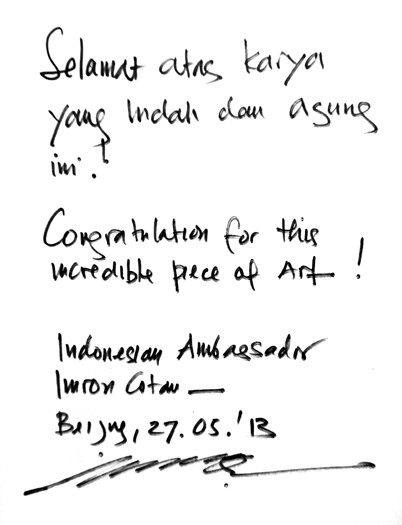 Selamat atas karya
yang Indah dan agung
ini!
Congratulation for this
incredible piece of Art !
Indonesian Ambassador
Imron Cotan —
Beijing, 27.05.'13